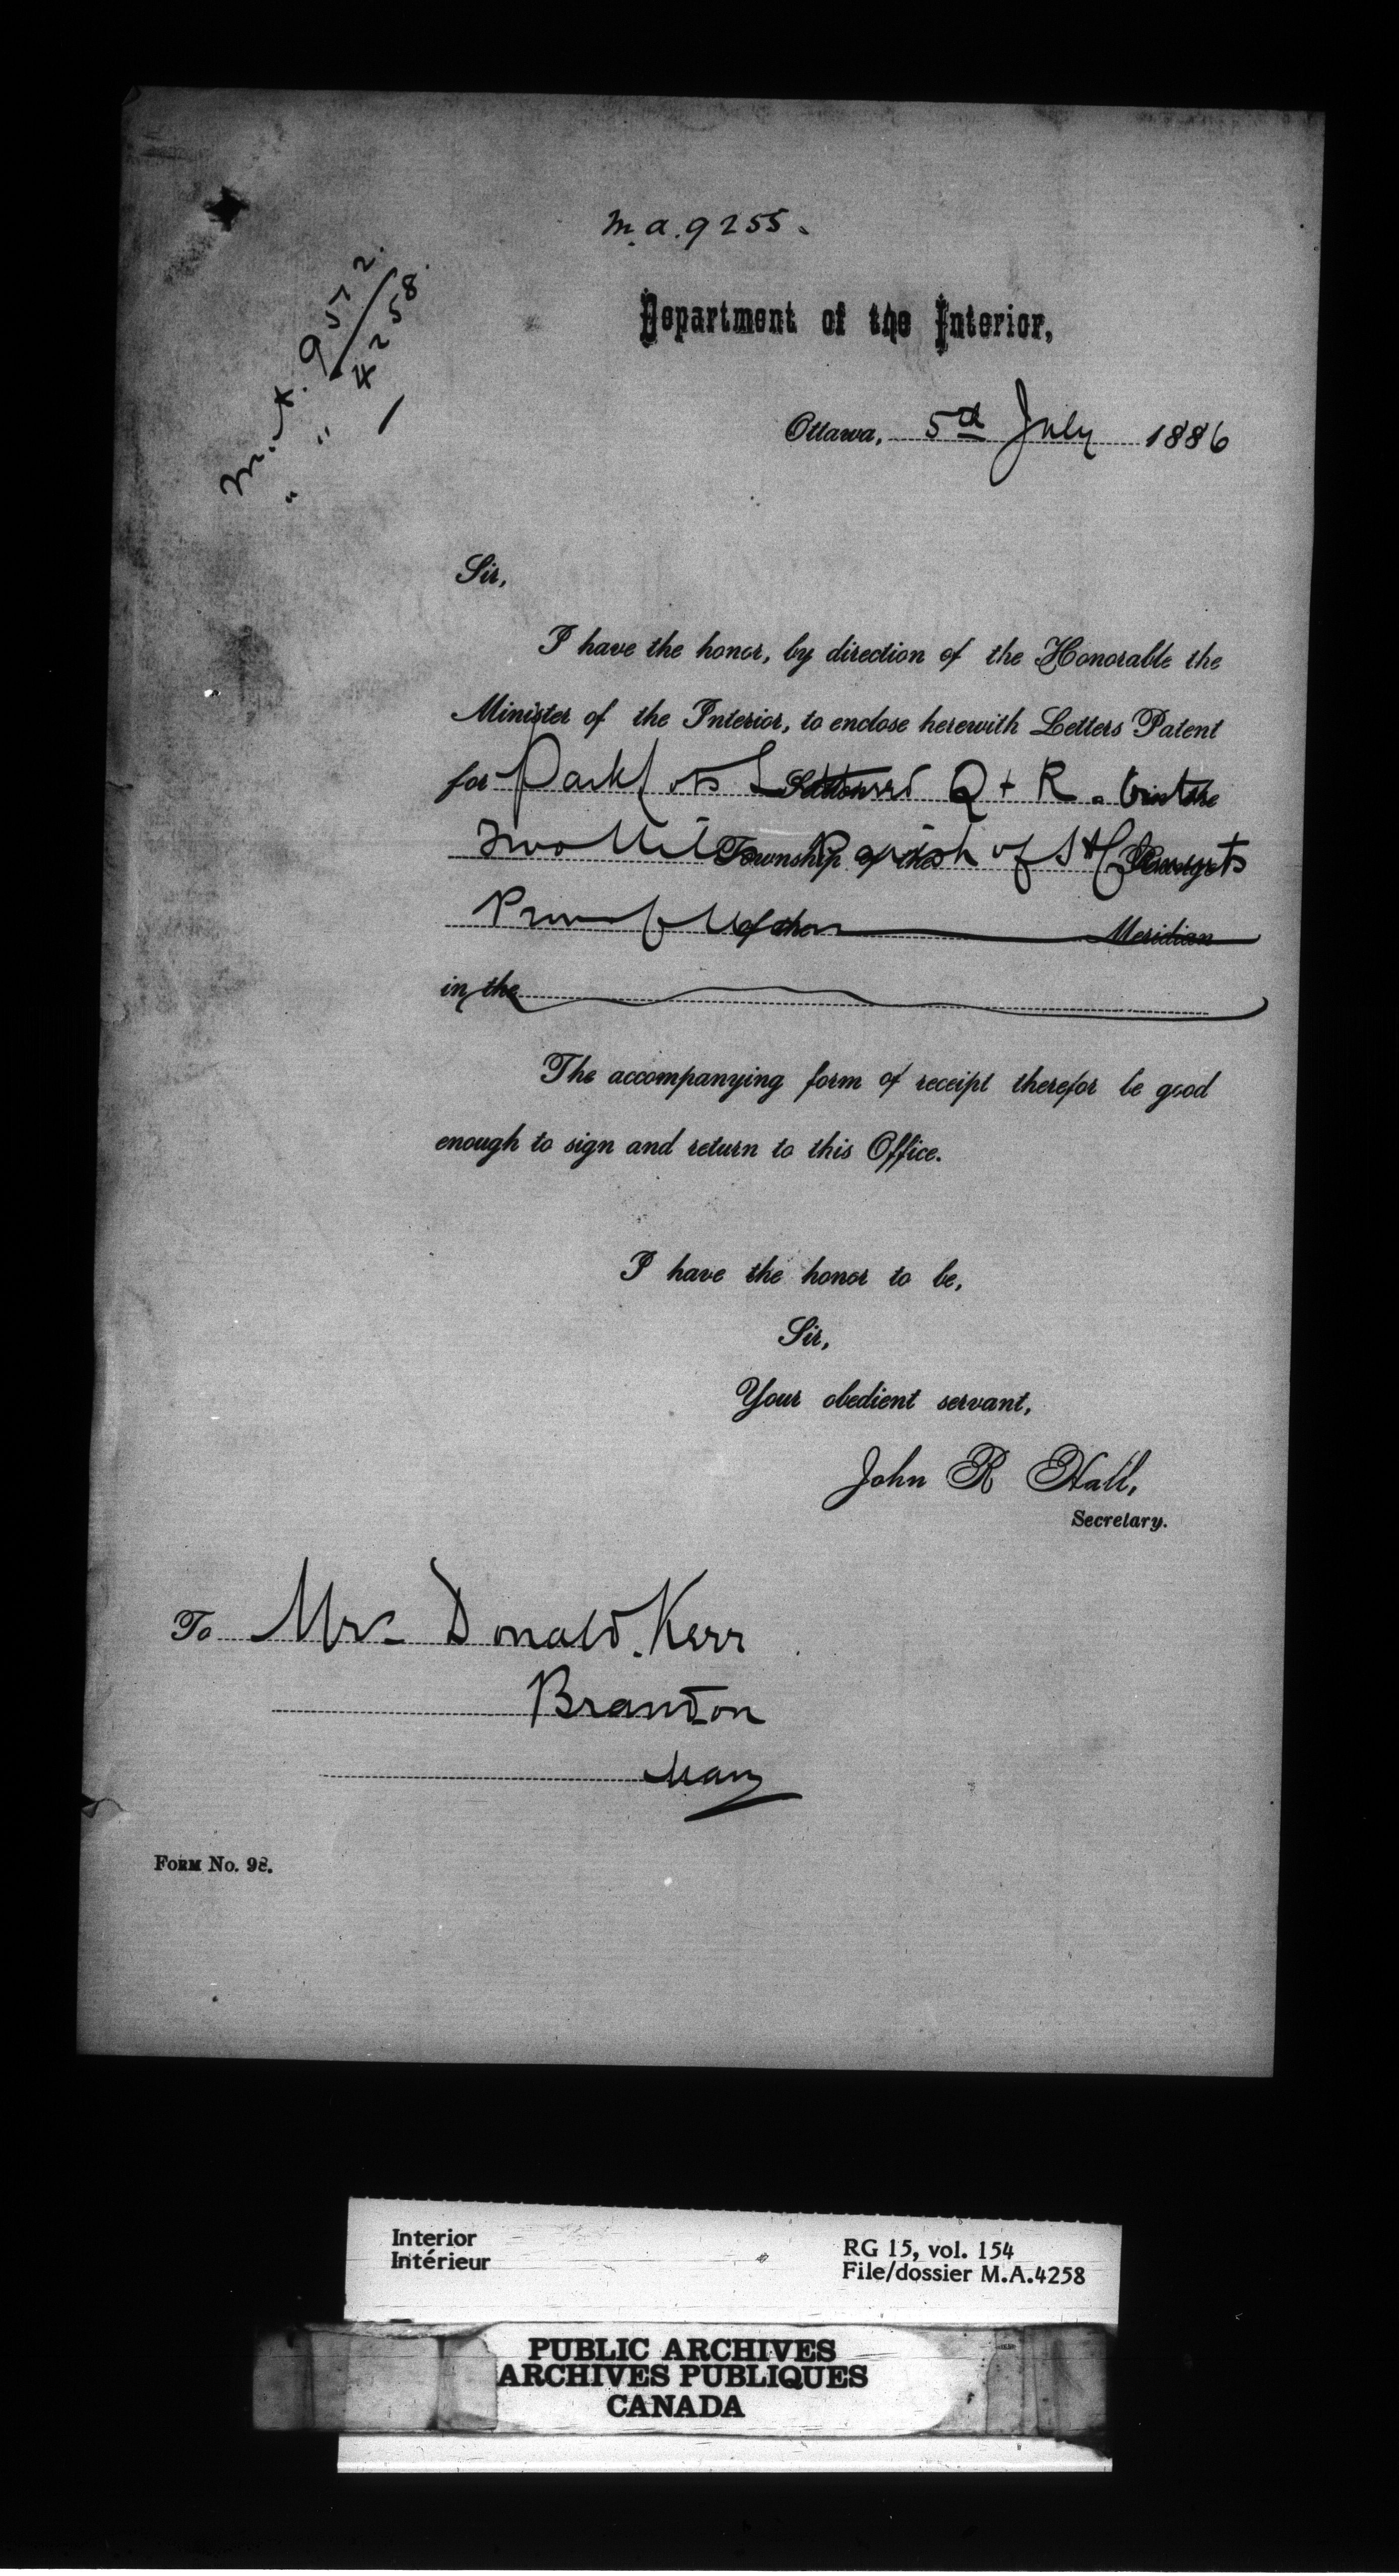 M.A. 9255.
M.A. 9572.
" " 4258.
Department of the Interior,
Ottawa, 5th July 1886
Sir,
I have the honor, by direction of the Honorable the
Minister of the Interior, to enclose herewith Letters Patent
for Park Lots Lettered Q + R. in the
Two Mile Township of the Parish of St Range
Prov of Man of the Meridian
in the
The accompanying form of receipt therefor be good
enough to sign and return to this Office.
I have the honor to be,
Sir,
Your obedient servant,
John R Hall,
Secretary.
To Mr Donald Kerr
Brandon
Man
Form No. 98.
Interior
Intérieur
RG 15, vol. 154
File/dossier M.A.4258
PUBLIC ARCHIVES
ARCHIVES PUBLIQUES
CANADA